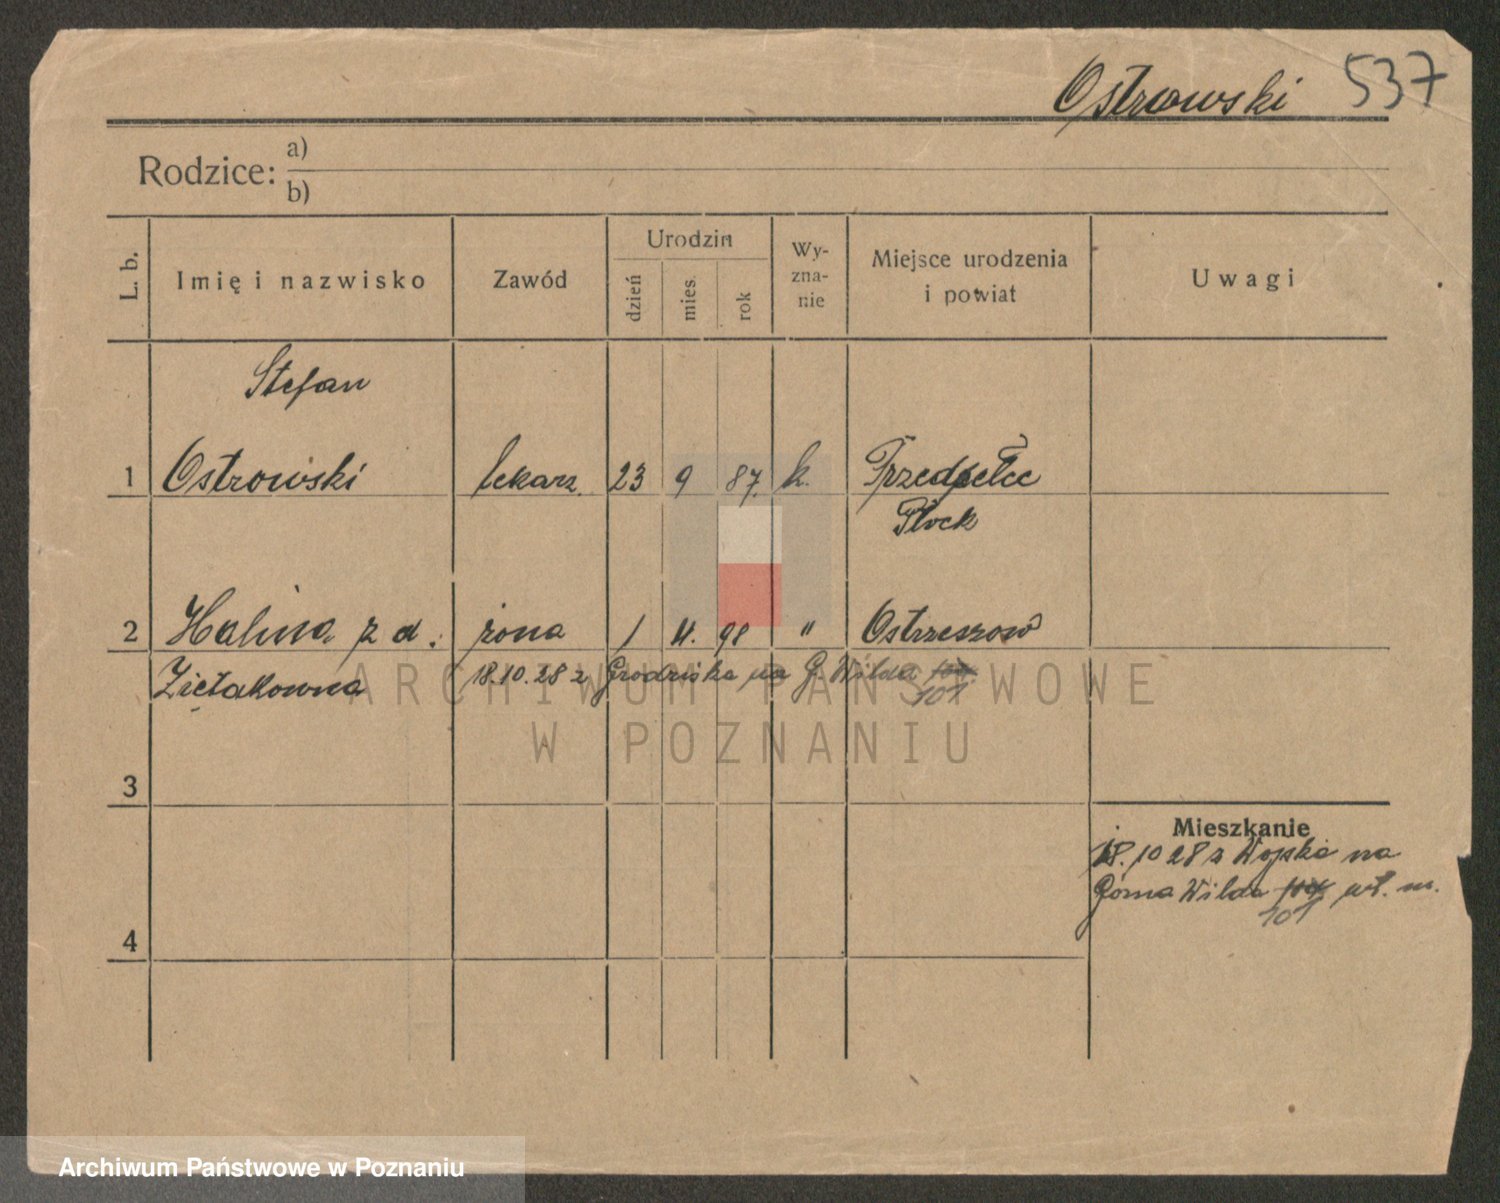 Ostrowski 537
Rodzice: a)
b)
L. b.
Imię i nazwisko
Zawód
Urodzin
dzień
mies.
rok
Wy-
zna-
nie
Miejsce urodzenia
i powiat
Uwagi
Stefan
1 Ostrowski lekarz. 23 9 87. k. Przedpełce
Płock
2 Halina z d. żona 1 11. 98 " Ostrzeszow
Ziętakowna 18.10.28 z Grodziska na G. Wilda
101
ARCHIWUM PAŃSTWOWE
W POZNANIU
3
Mieszkanie
18. 10 28 z Wojska na
Górna Wilda wł. m.
101
4
Archiwum Państwowe w Poznaniu